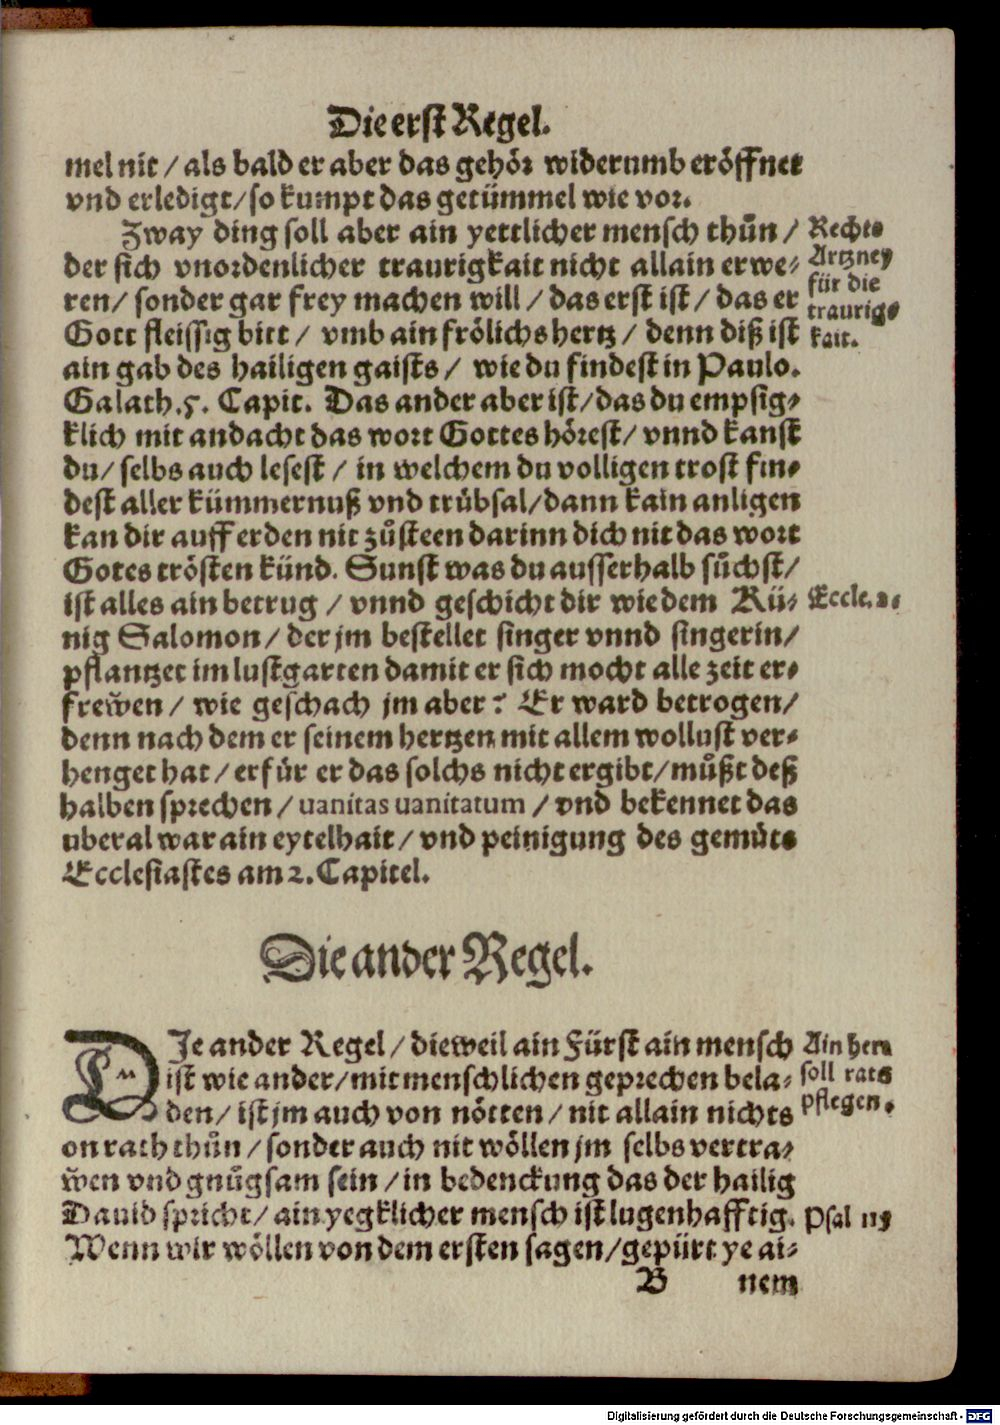 Die erst Regel.
mel nit / als bald er aber das gehör widerumb eröffnet
vnd erledigt / so kumpt das getümmel wie vor.
Zway ding soll aber ain yettlicher mensch thůn /
der sich vnordenlicher traurigkait nicht allain erwe⸗
ren / sonder gar frey machen will / das erst ist / das er
Gott fleissig bitt / vmb ain frölichs hertz / denn diß ist
ain gab des hailigen gaists / wie du findest in Paulo.
Galath. 5. Capit. Das ander aber ist / das du empsig⸗
klich mit andacht das wort Gottes hörest / vnnd kanst
du / selbs auch lesest / in welchem du volligen trost fin⸗
dest aller kümmernuß vnd trübsal / dann kain anligen
kan dir auff erden nit zůsteen darinn dich nit das wort
Gotes trösten künd. Sunst was du ausserhalb sůchst /
ist alles ain betrug / vnnd geschicht dir wie dem Kü⸗
nig Salomon / der jm bestellet singer vnnd singerin /
pflantzet im lustgarten damit er sich mocht alle zeit er⸗
frewen / wie geschach jm aber? Er ward betrogen /
denn nach dem er seinem hertzen mit allem wollust ver⸗
henget hat / erfür er das solchs nicht ergibt / můßt deß
halben sprechen / uanitas uanitatum / vnd bekennet das
uberal war ain eytelhait / vnd peinigung des gemůts
Ecclesiastes am 2. Capitel.
Rechte
Artzney
für die
traurig⸗
kait.
Eccle. 2.
Die ander Regel.
DIe ander Regel / dieweil ain Fürst ain mensch
ist wie ander / mit menschlichen geprechen bela⸗
den / ist jm auch von nötten / nit allain nichts
on rath thůn / sonder auch nit wöllen jm selbs vertra⸗
wen vnd gnůgsam sein / in bedenckung das der hailig
Dauid spricht / ain yegklicher mensch ist lugenhafftig.
Wenn wir wöllen von dem ersten sagen / gepürt ye ai⸗
Ain herr
soll rats
pflegen.
Psal 115
B nem
Digitalisierung gefördert durch die Deutsche Forschungsgemeinschaft - DFG